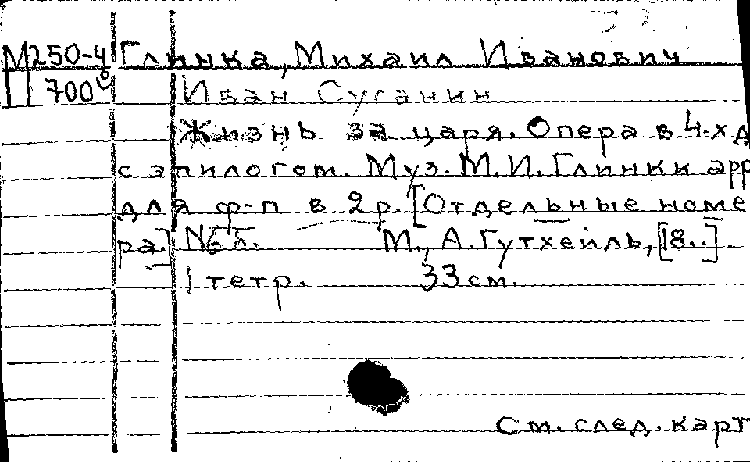 М250-4 Глинка, Михаил Иванович
П 700 Иван Сусанин
Жизнь за царя. Опера в 4-х д
с эпилогом. Муз. М.И. Глинки арр
для ф-п в 2 р. [Отдельные номе
ра.] М., А. Гутхейль, [18..].
1 тетр. 33 см.
См. след. карт